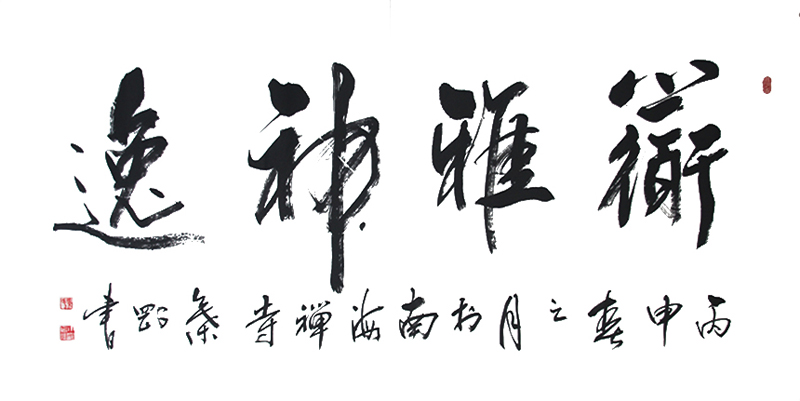 蘅雅神逸
丙申春之月於南海禪寺 剛書